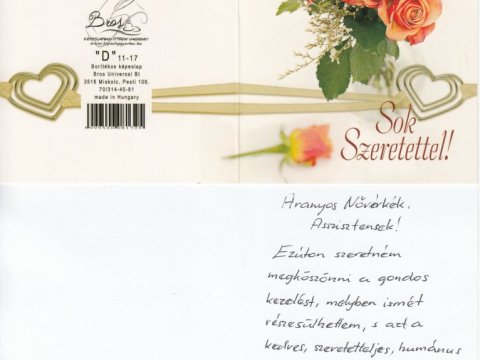 Bros
KÉPESLAPOT ITTHON VAGYOK!
www.kepeslapgyartas.hu
"D" 11-17
Borítékos képeslap
Bros Universal Bt
3516 Miskolc, Pesti 106.
70/314-45-61
made in Hungary
Sok
Szeretettel!
Aranyos Nővérkék,
Asszisztensek!
Ezúton szeretném
megköszönni a gondos
kezelést, melyben ismét
részesülhettem, s azt a
kedves, szeretetteljes, humánus